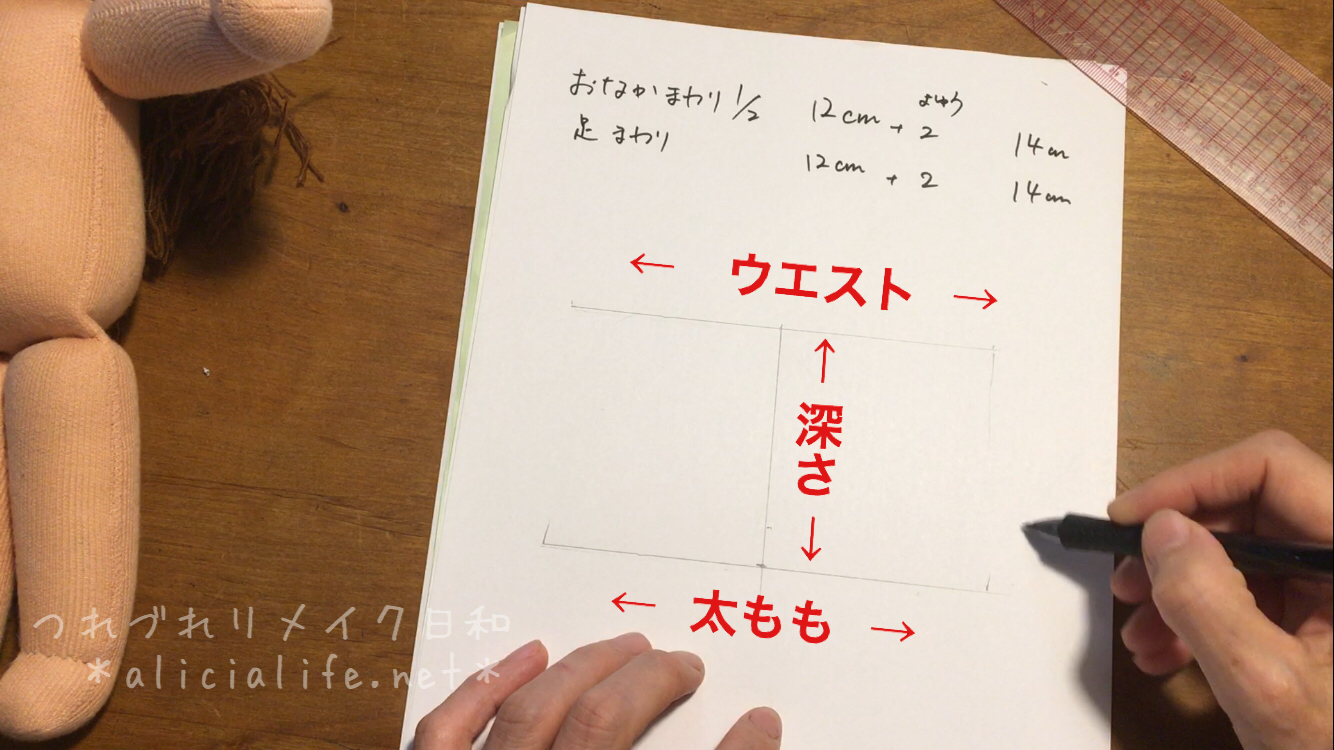 おなかまわり 1/2 12cm + 2 よゆう 14cm
足まわり 12cm + 2 14cm
← ウエスト →
↑
深さ
↓
← 太もも →
つれづれリメイク日和
*alicialife.net*